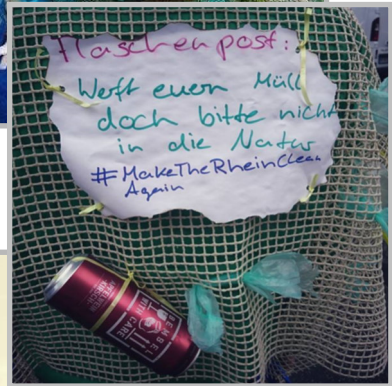 Flaschenpost:
Werft euren Müll
doch bitte nicht
in die Natur
#MakeTheRheinClean
Again
BEMBEL
WITH CARE